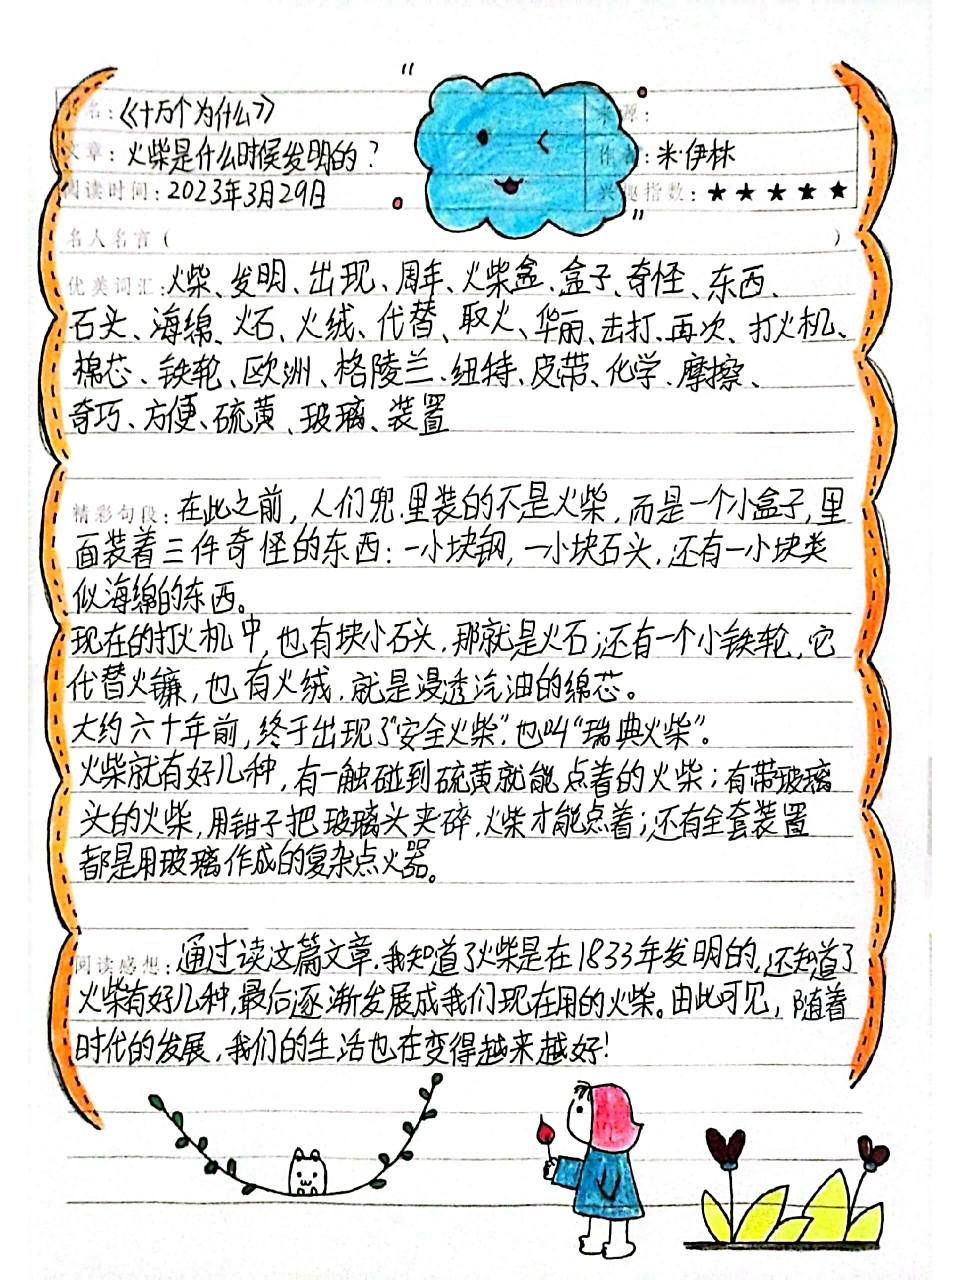 书名:《十万个为什么》
来源:
文章:火柴是什么时候发明的?
作者:米·伊林
阅读时间:2023年3月29日
兴趣指数:★★★★★
名人名言( )
优美词汇:火柴、发明、出现、周年、火柴盒、盒子、奇怪、东西、
石头、海绵、火石、火绒、代替、取火、华丽、击打、再次、打火机、
棉芯、铁轮、欧洲、格陵兰、纽特、皮带、化学、摩擦、
奇巧、方便、硫黄、玻璃、装置
精彩句段:在此之前,人们兜里装的不是火柴,而是一个小盒子,里
面装着三件奇怪的东西:一小块钢,一小块石头,还有一小块类
似海绵的东西。
现在的打火机中,也有块小石头,那就是火石;还有一个小铁轮,它
代替火镰,也有火绒,就是浸透汽油的绵芯。
大约六十年前,终于出现了“安全火柴”,也叫“瑞典火柴”。
火柴就有好几种,有一触碰到硫黄就能点着的火柴;有带玻璃
头的火柴,用钳子把玻璃头夹碎,火柴才能点着;还有全套装置
都是用玻璃作成的复杂点火器。
阅读感想:通过读这篇文章,我知道了火柴是在1833年发明的,还知道了
火柴有好几种,最后逐渐发展成我们现在用的火柴。由此可见,随着
时代的发展,我们的生活也在变得越来越好!